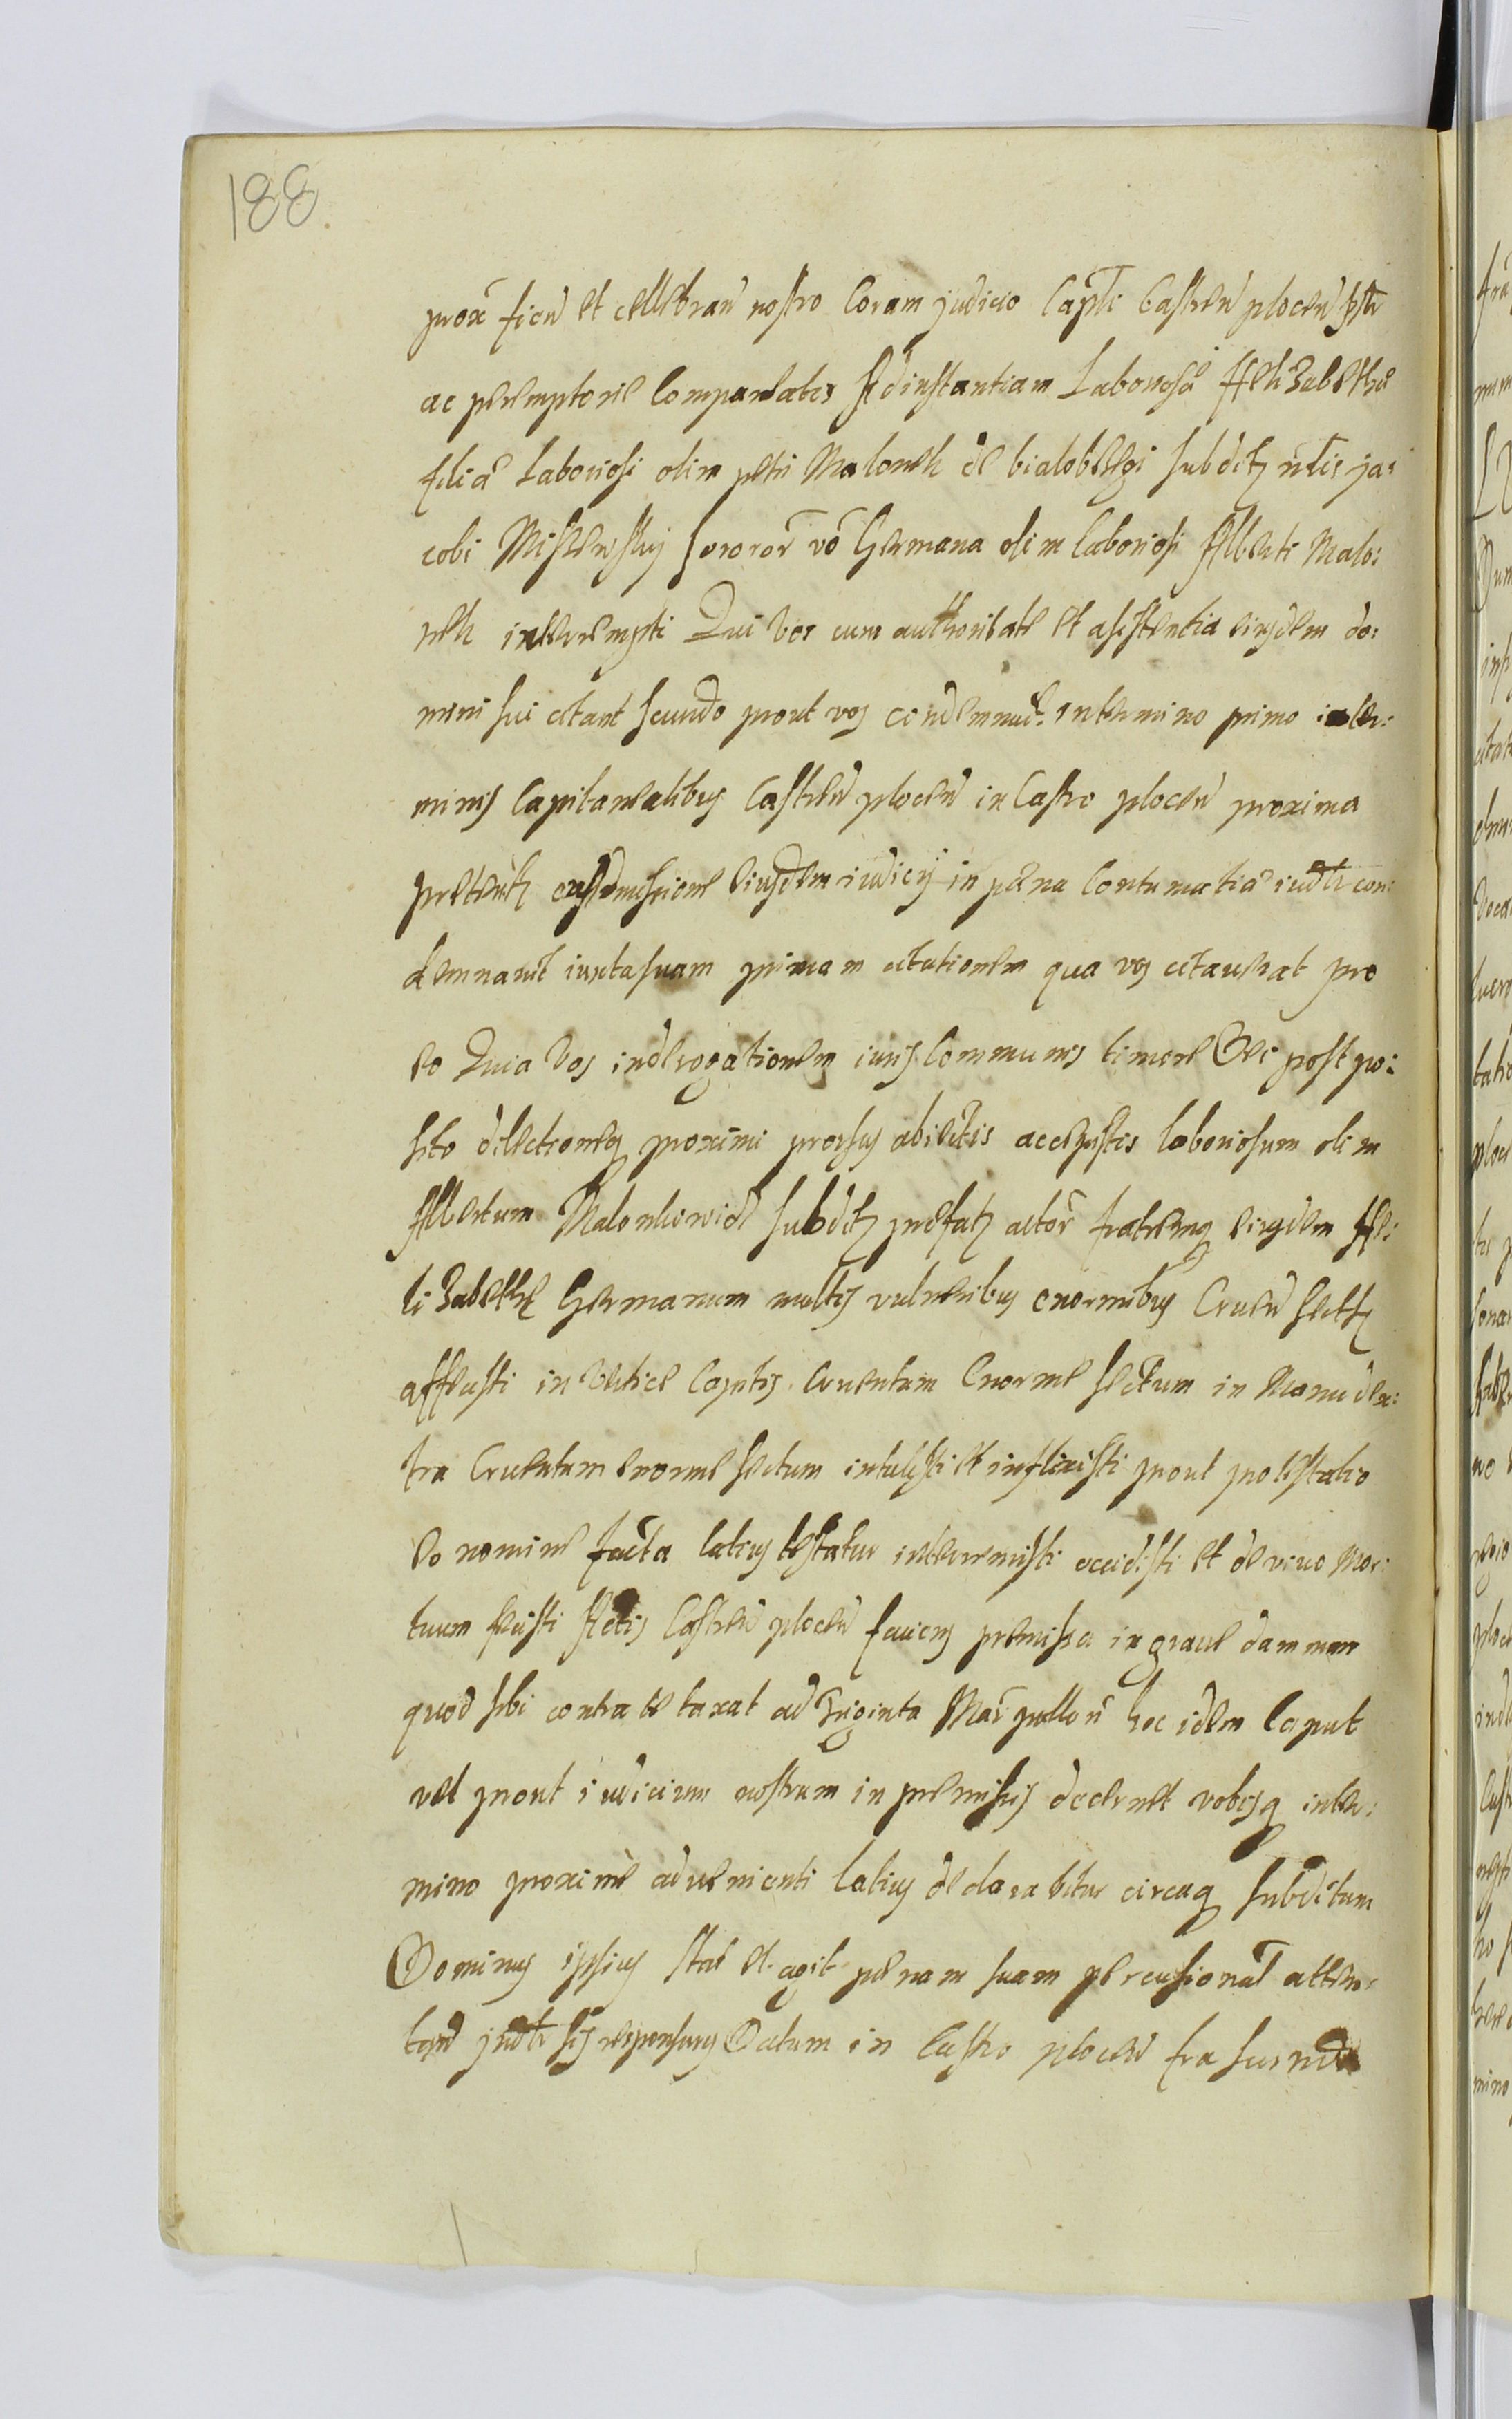 188.
prox fien et cellebran nostro Coram judicio Capti Castren plocen pstr
ac peremptorie Compareatis Ad instantiam Laboriosa Helizabetha
filia Laboriosi olim petri Malonek de bialobrzegi subditz nlis ja:
cobi Miszewskij soror vo Germana olim laboriosi Alberti Malo:
nek interrempti Qui vos cum authoritate et asistentia eiusdem do:
mini sui citant secundo prout vos condemnat in termino primo in ter:
minis Capitanealibus Castren plocen in Castro plocen proxima
preteritz eiusdem iudicij in pæna Contumatia iudlr con:
demnavit iuxta suam primam citationem qua vos citaverat pro
eo Quia Vos in derogationem iuris Communis timore Dei post po:
sito dilectioneq proximi prorsus abiectis accepistis laboriosum olim
Albertum subditz prefatz actor fratremq eiusdem He:
lizabethe Germanum multis vulneribus enormibus Cruen sectz
affecisti in Vertice Capitis Cruentum Enorme sectum in Manu dex:
tra Cruentum enorme sectum intulisti et inflixisti prout protestatio
eo nomine facta latius testatur interremisti occidisti et de vivo Mor:
tuum fecisti Actis Castren plocen faciens premissa in grave damnum
quod sibi contra te taxat ad Triginta Mar pullon hoc idem Caput
vel prout iudicium nostrum in premissis decernet vobisq in ter:
mino proxime advenienti latius declarabitur circaq subditum
Dominus ipsius stat et agit pænam suam percusional atten:
tand judlr sis responsurus Datum in Castro plocen fra